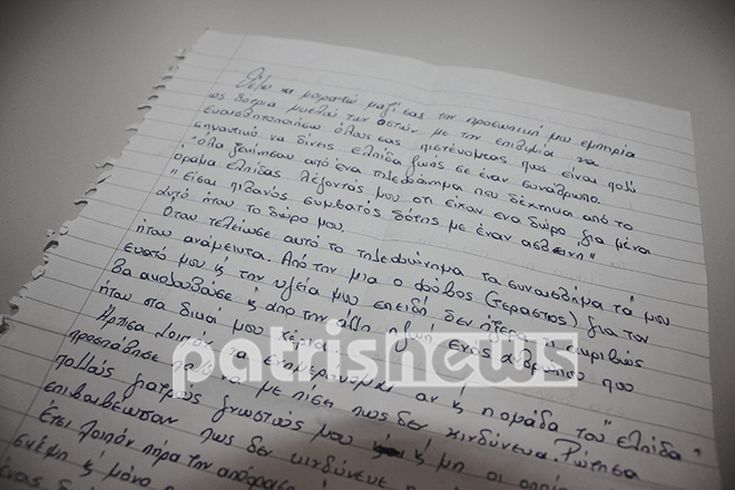 Θέλω να μοιραστώ μαζί σας την προσωπική μου εμπηρία
ως δότρια μυελού των οστών με την επιθυμία να
ευαισθητοποιήσω όλους σας πιστεύοντας πως είναι πολύ
σημαντικό να δίνεις ελπίδα ζωής σε έναν συνάνθρωπο.
Όλα ξεκίνησαν από ένα τηλεφώνημα που δέχτηκα από το
όραμα ελπίδας λέγοντάς μου ότι είχαν ενα δώρο για μένα
"Είσαι πιθανός συμβατός δότης με έναν ασθενη"
αυτό ήταν το δώρο μου.
Όταν τελείωσε αυτό το τηλεφώνημα τα συναισθήματά μου
ήταν ανάμεικτα. Από την μια ο φόβος (τεράστιος) για τον
εαυτό μου ή την υγεία μου επειδή δεν ήξερα τι ακριβώς
θα ακολουθούσε ή απο την άλλη η ζωή ενός ανθρώπου που
ήταν στα δικά μου χέρια.
Άρχισα λοιπόν να ενημερώνομαι αν ή η ομάδα του "ελπίδα"
προσπάθησε να με πίσει πως δεν κινδύνευα. Ρώτησα
πολλούς γιατρούς γνωστούς μου ή μη οι οποίοι
επιβαιβέωσαν πως δεν κινδύνευε
Έτσι λοιπόν πήρα την απόφαση
σκέψη ή μόνο
ένας δ
patrisnews